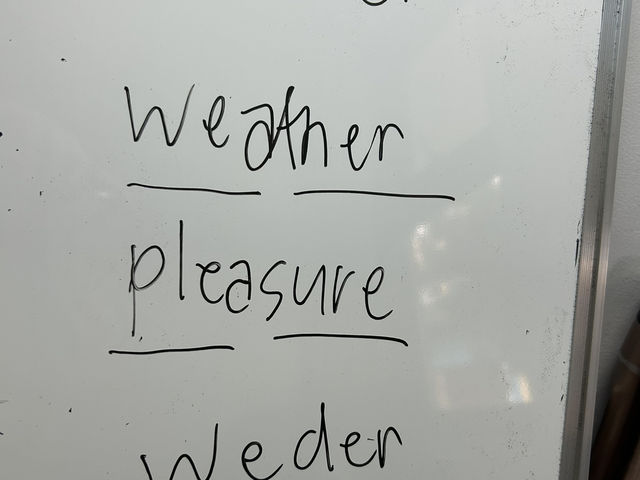 weather
pleasure
weder